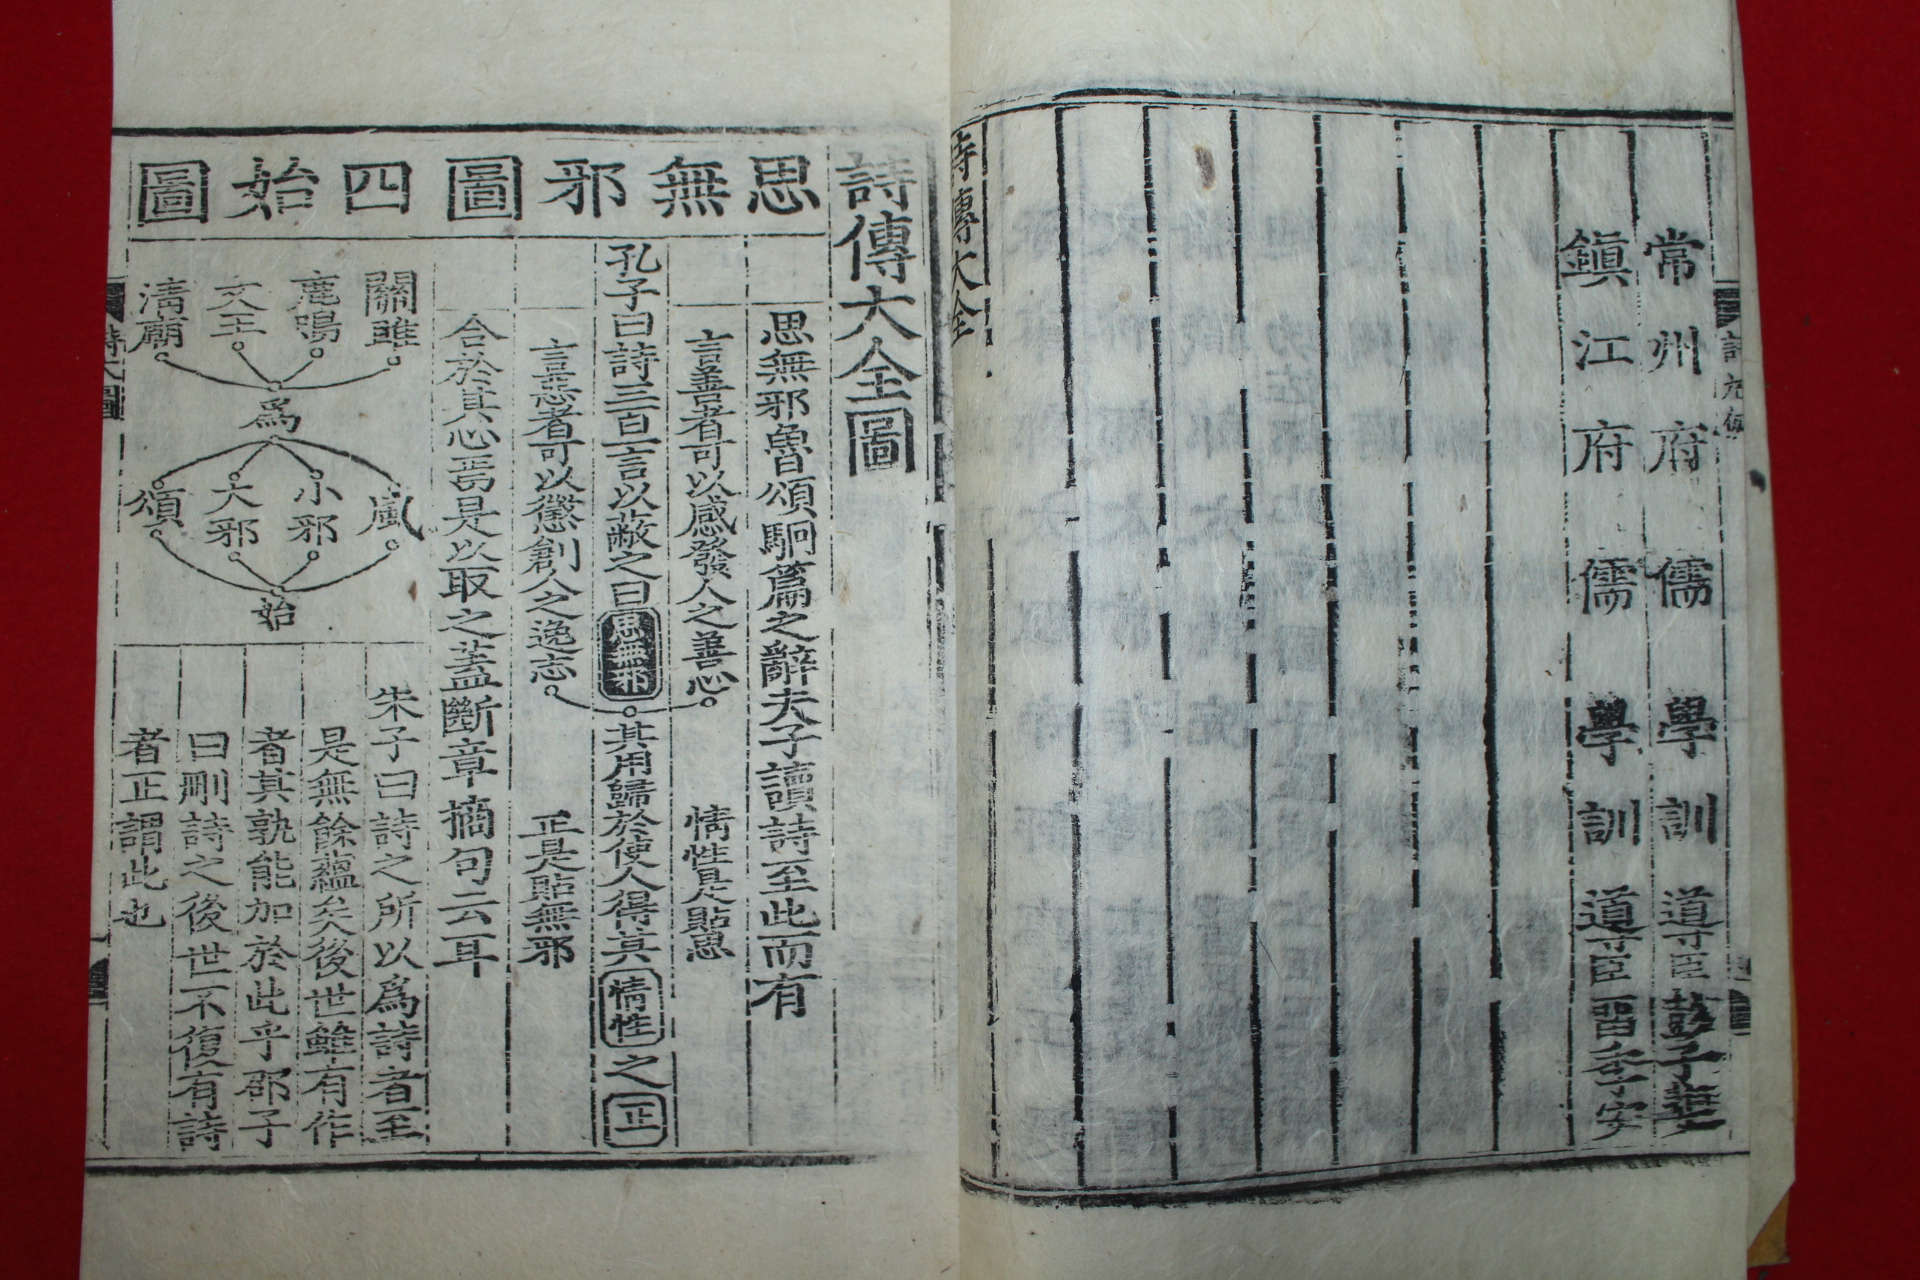 常州府儒學訓道臣彭子斐
鎭江府儒學訓道臣留季安
詩傳大全
詩傳大全圖
思無邪圖
四始圖
思無邪魯頌駉篇之辭夫子讀詩至此而有
言善者可以感發人之善心
情性是貼思
孔子曰詩三百一言以蔽之曰思無邪其用歸於使人得其情性之正
言惡者可以懲創人之逸志
正是貼無邪
合於其心焉是以取之蓋斷章摘句云耳
關雎
鹿鳴
文王
淸廟
爲
風
小邪
大邪
頌
始
朱子曰詩之所以爲詩者至
是無餘蘊矣後世雖有作
者其孰能加於此乎邵子
曰刪詩之後世不復有詩
者正謂此也